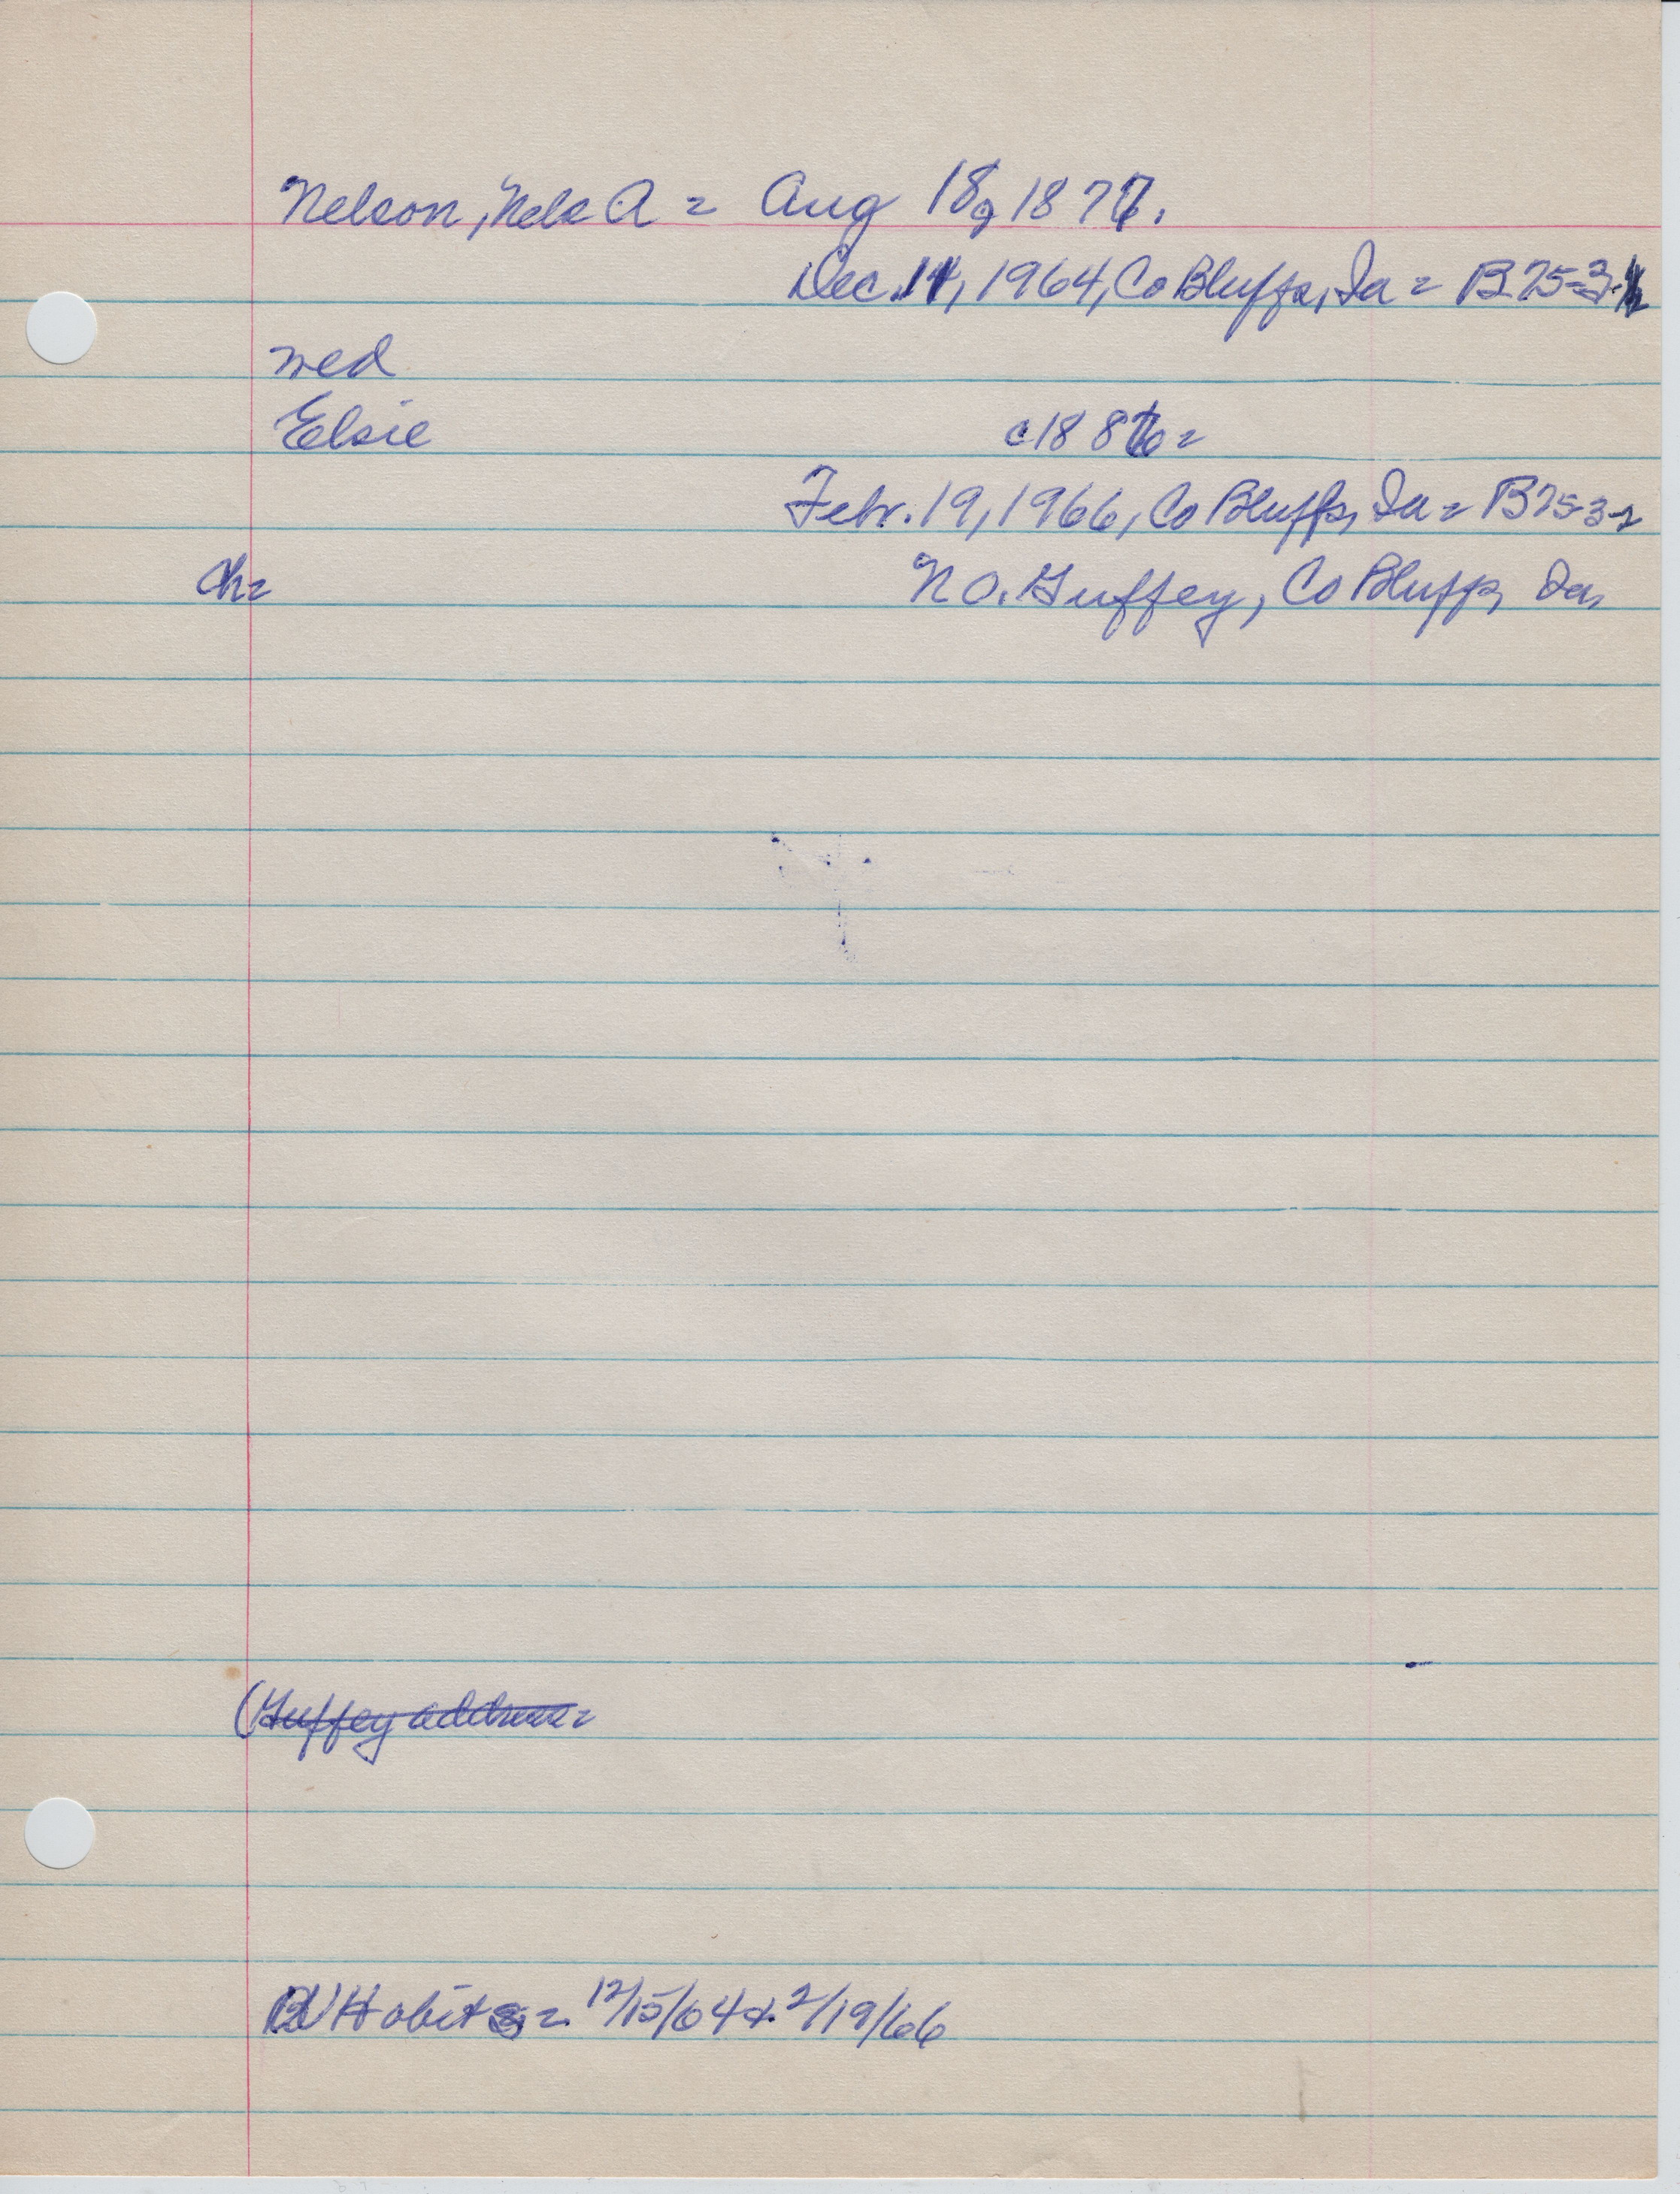 Nelson, Nels A = Aug 18, 187
Dec. 14, 1964, Co Bluffs, Ia = B25-3-
wed
Elsie c188 =
Febr. 19, 1966, Co Bluffs, Ia = B25-3-2
Ch= N O. Guffey, Co Bluffs, Ia,
(Guffey address=
Obits = 12/15/64 & 2/19/66